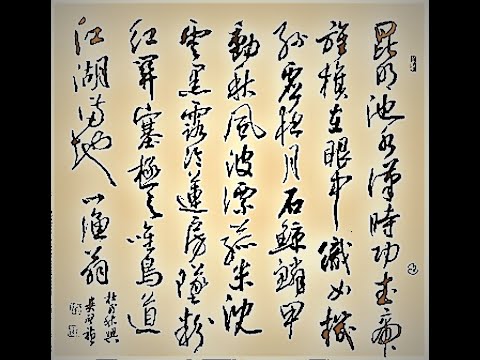 昆明池水漢時功武帝
旌旗在眼中織女機
絲虛夜月石鯨鱗甲
動秋風波漂菰米沈
雲黑露冷蓮房墜粉
紅關塞極天唯鳥道
江湖滿地一漁翁
杜甫秋興